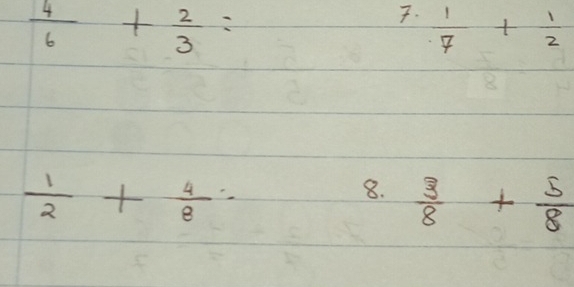 4/6 + 2/3 = 7. 1/7 + 1/2
1/2 + 4/8 = 8. 3/8 + 5/8